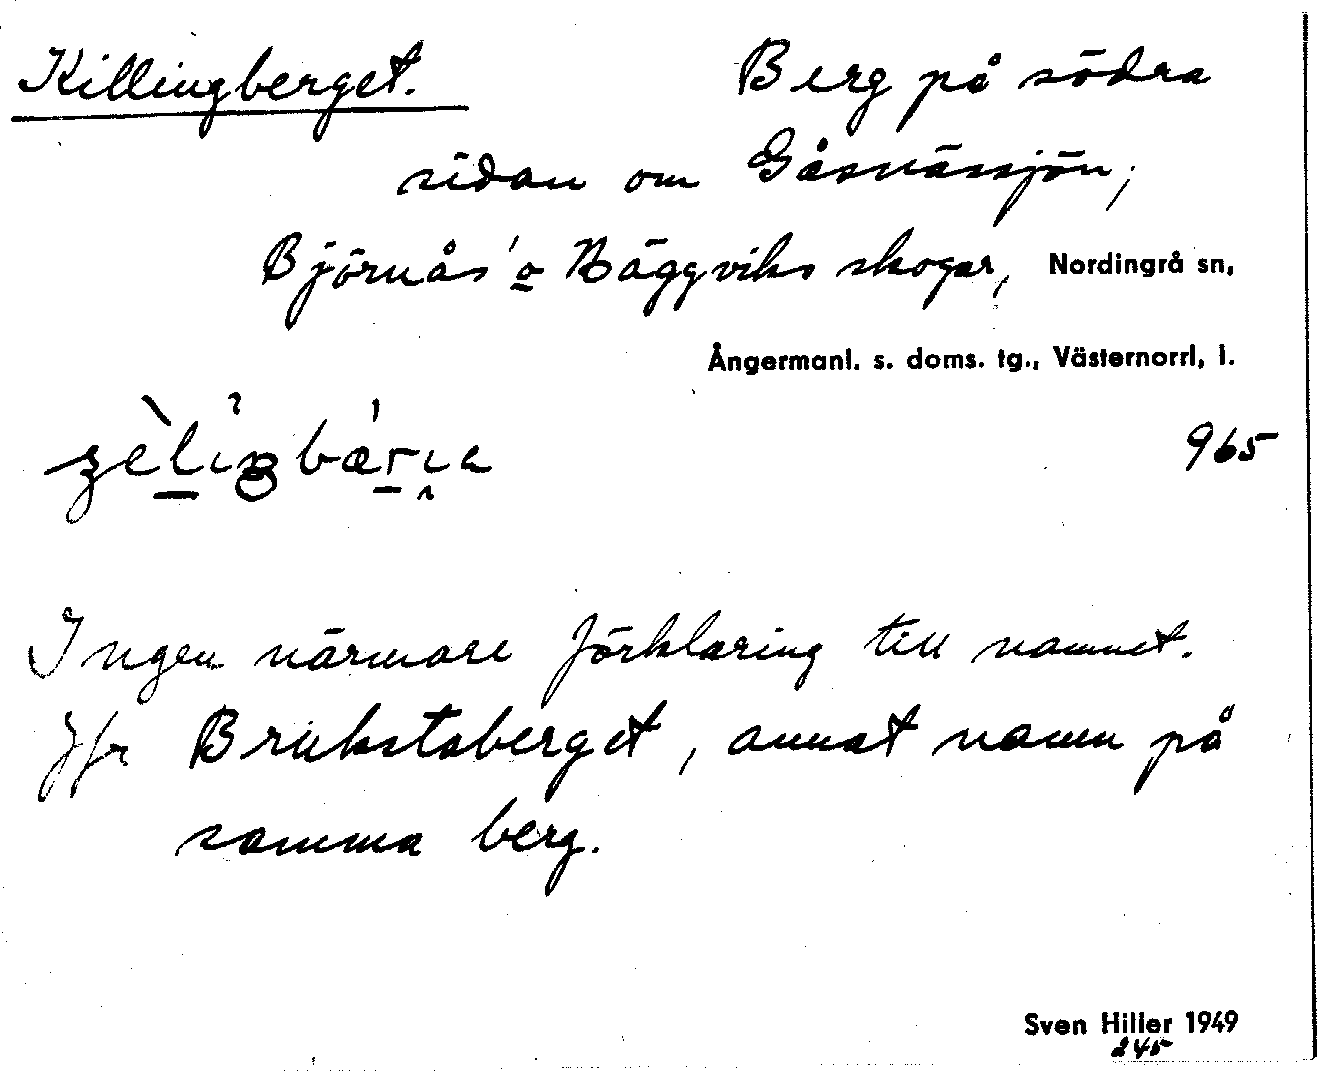 Killingberget. Berg på södra
sidan om Gåsnässjön;
Björnås' o Häggviks skogar, Nordingrå sn,
Ångermanl. s. doms. tg., Västernorrl, l.
965
Ingen närmare förklaring till namnet.
Jfr Brukstaberget, annat namn på
samma berg.
Sven Hiller 1949
245